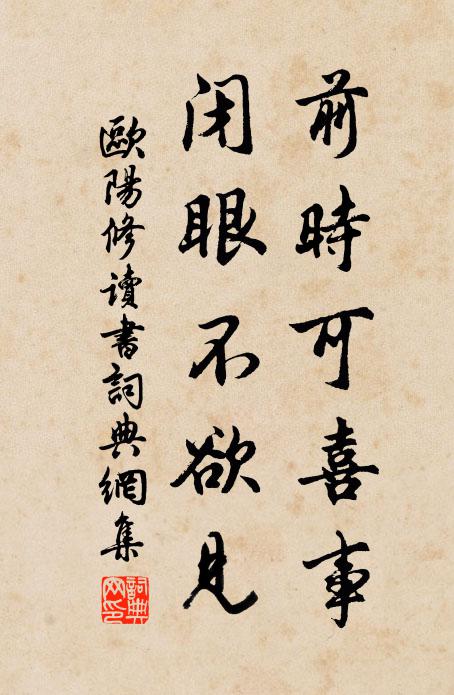 前時可喜事
閉眼不欲見
歐陽修讀書詞典網集
詞典
网印